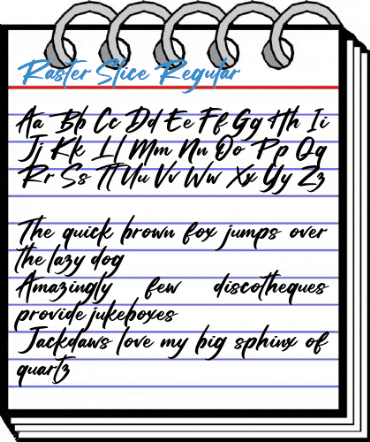 Raster Slice Regular
Aa Bb Cc Dd Ee Ff Gg Hh Ii
Jj Kk Ll Mm Nn Oo Pp Qq
Rr Ss Tt Uu Vv Ww Xx Yy Zz
The quick brown fox jumps over
the lazy dog
Amazingly few discotheques
provide jukeboxes
Jackdaws love my big sphinx of
quartz